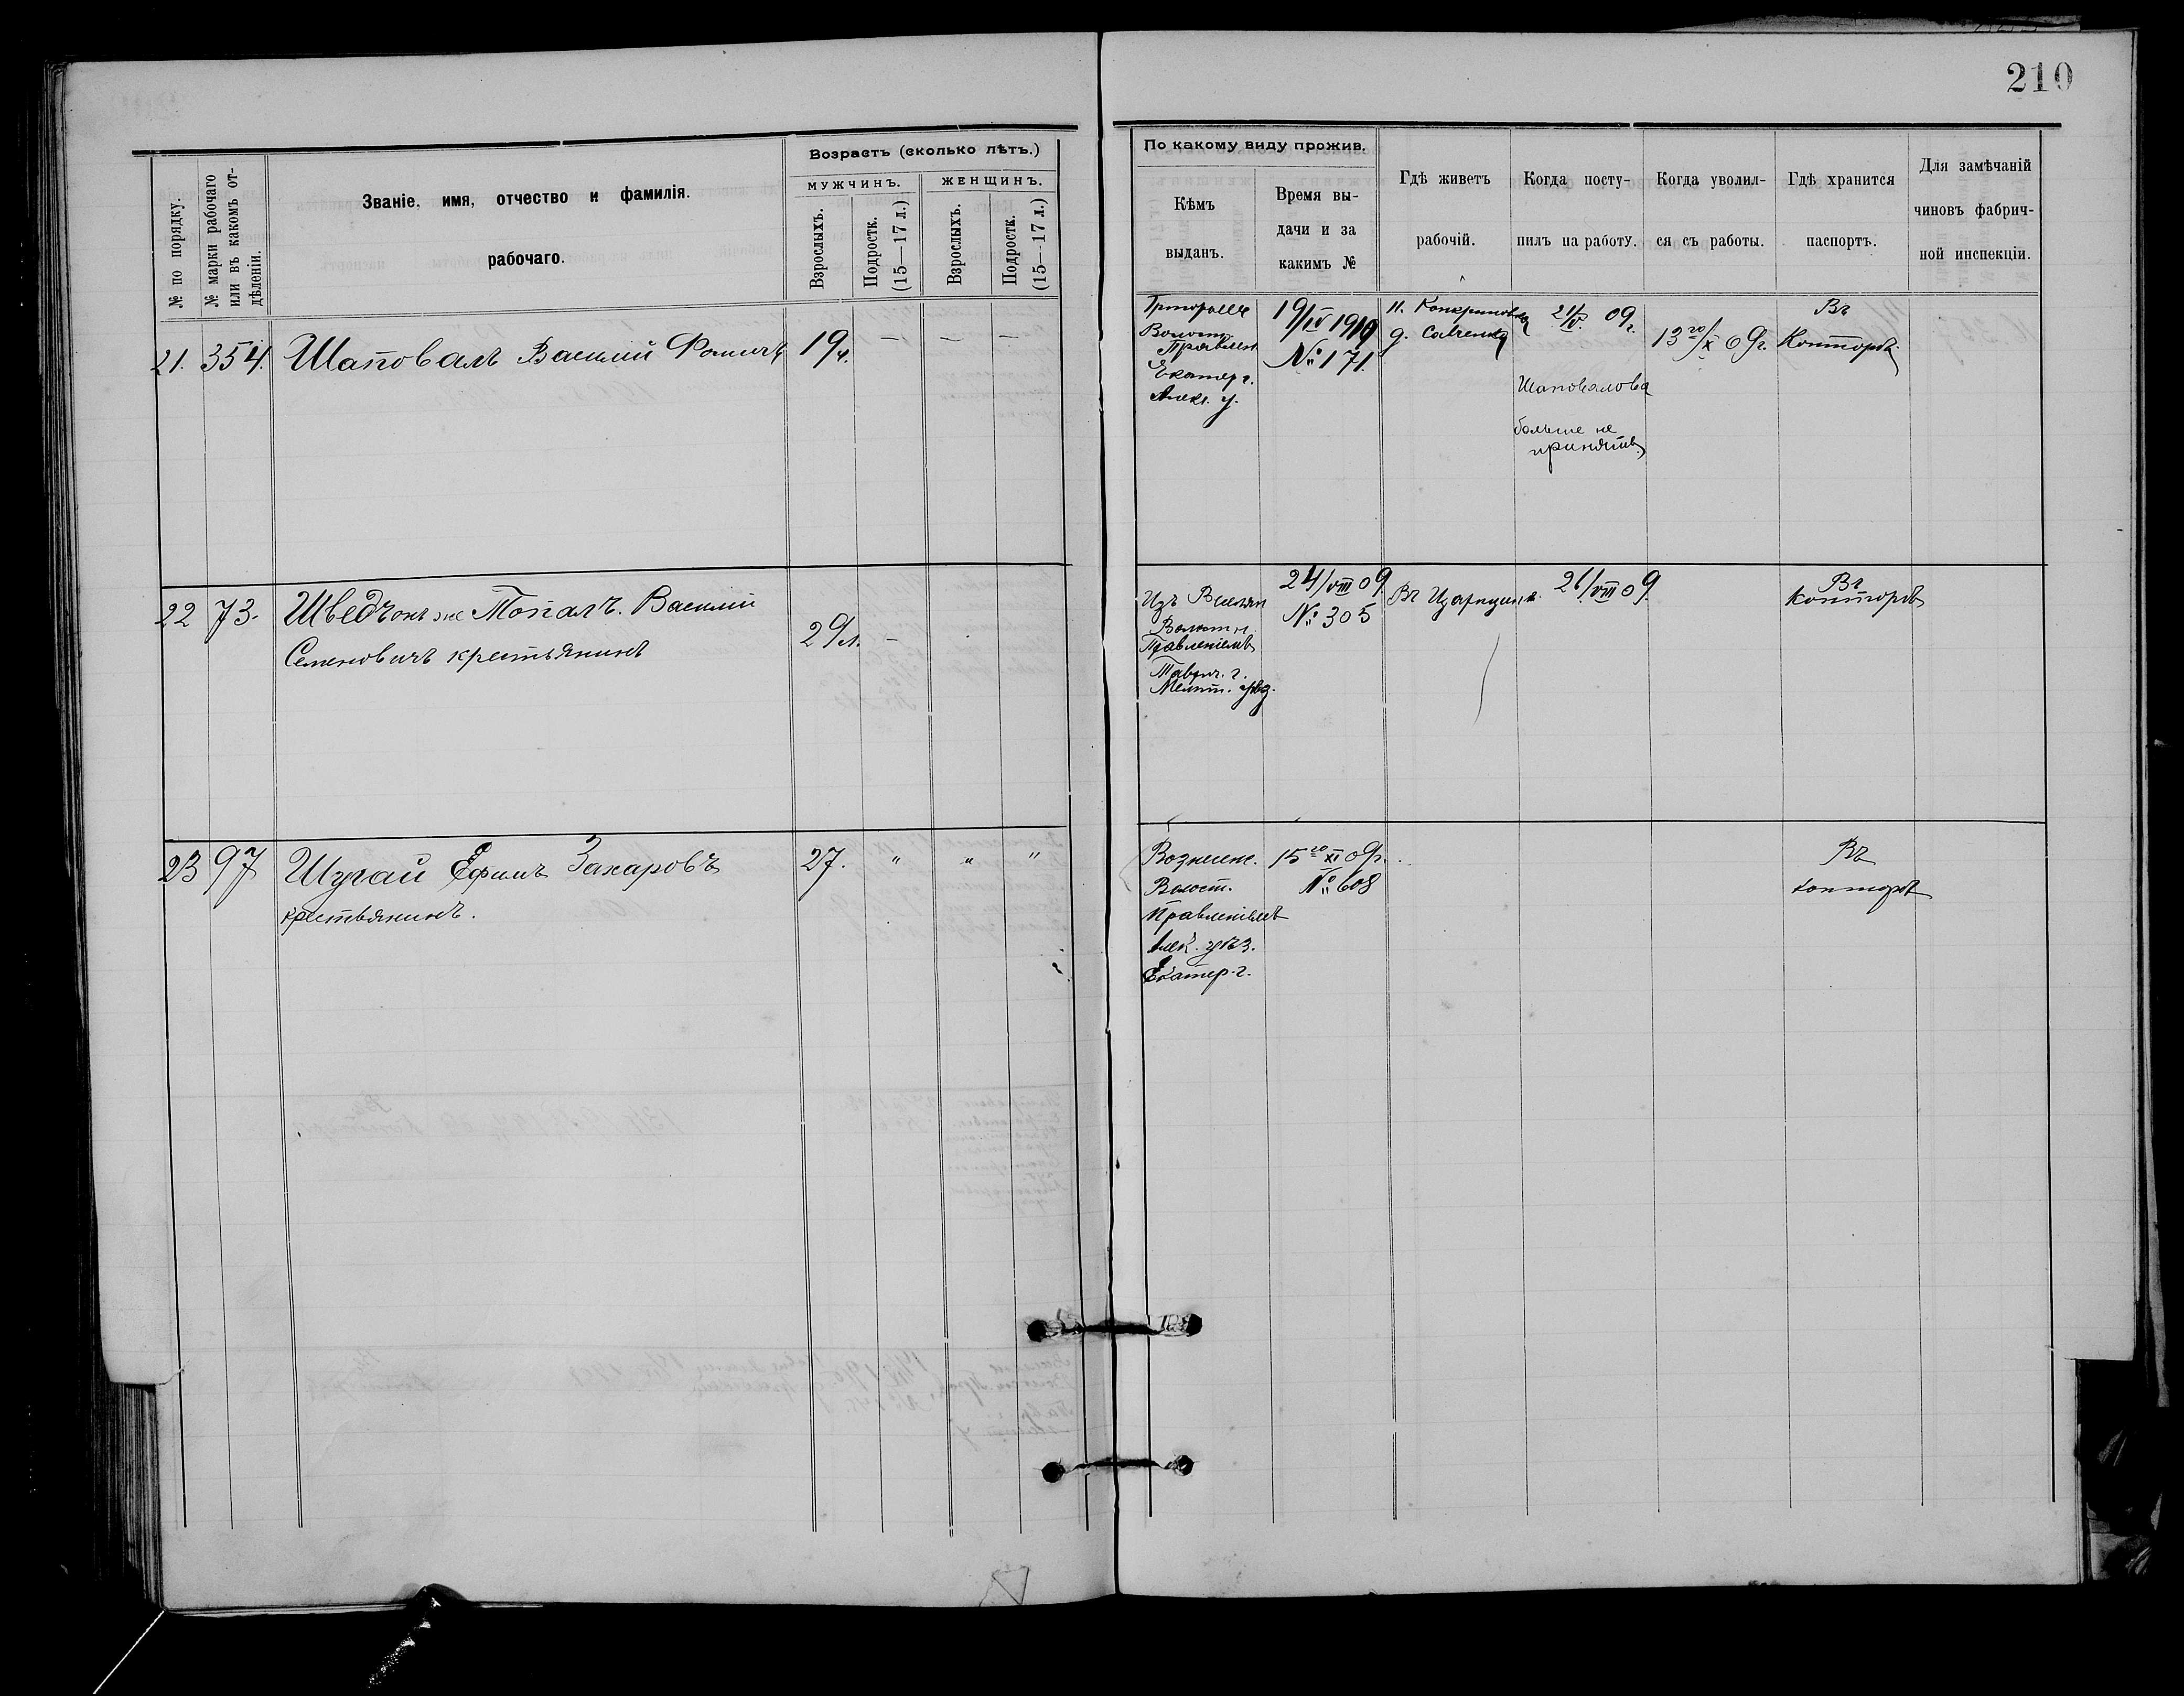 210
№ по порядку.
№ марки рабочаго
или въ какомъ от-
дѣленіи.
Званіе, имя, отчество и фамилія.
рабочаго.
Возрастъ (сколько лѣтъ.)
мужчинъ.
женщинъ.
Взрослыхъ.
Подростк.
(15—17 л.)
Взрослыхъ.
Подростк.
(15—17 л.)
По какому виду прожив.
Кѣмъ
выданъ.
Время вы-
дачи и за
какимъ №
Гдѣ живетъ
рабочій.
Когда посту-
пилъ на работу.
Когда уволил-
ся съ работы.
Гдѣ хранится
паспортъ.
Для замѣчаній
чиновъ фабрич-
ной инспекціи.
21. 354. Шаповалъ Василій
19
— — —
Волост.
Правлен
Екатер г.
Алекс. у.
19/IV
№ 171.
д. Савченка
21/IV 09 г.
Шаповалова
больше не
принять
13го/X 09 г.
Въ
Конторѣ
22 73. Шведъ онъ же Топалъ. Василій
Семеновичъ крестьянинъ
29 л. —
Волостн.
Правленіемъ
Таврич. г.
Мелит. уѣз.
24/VIII 09
№ 305
26/VIII 09.
Въ
конторѣ
23 97 Шугай Ефимъ Захаровъ
крестьянинъ.
27. " " "
Вознесен.
Волост.
Правленіемъ
Алек. уѣз.
Екатер. г.
15го XI 09 г.
№ 608
Въ
конторѣ